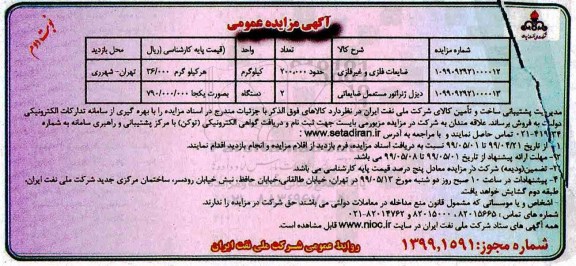 آگهی مزایده عمومی
نوبت دوم
شماره مزایده شرح کالا تعداد واحد (قیمت پایه کارشناسی (ریال محل بازدید
۱۰۹۹۰۹۲۹۲۱۰۰۰۰۱۲ ضایعات فلزی و غیرفلزی حدود ۲۰۰،۰۰۰ کیلوگرم هر کیلو گرم ۳۶/۰۰۰ تهران- شهرری
۱۰۹۹۰۹۲۹۲۱۰۰۰۰۱۳ دیزل ژنراتور مستعمل ضایعاتی ۲ دستگاه بصورت یکجا ۷۹۰/۰۰۰/۰۰۰
مدیریت پشتیبانی ساخت و تأمین کالای شرکت ملی نفت ایران در نظر دارد کالاهای فوق الذکر با جزئیات مندرج در اسناد مزایده را با بهره گیری از سامانه تدارکات الکترونیکی
دولت به فروش برساند. علاقه مندان به شرکت در مزایده مزبور می بایست جهت ثبت نام و دریافت گواهی الکترونیکی (توکن) با مرکز پشتیبانی و راهبری سامانه به شماره
۴۱۹۳۴-۰۲۱ تماس حاصل نمایند و با مراجعه به آدرس www.setadiran.ir :
۱- از تاریخ ۹۹/۰۴/۲۱ تا ۹۹/۰۵/۰۱ نسبت به دریافت اسناد مزایده، فرم بازدید از اقلام مزایده و انجام بازدید اقدام نمایند.
۲- مهلت ارائه پیشنهاد از تاریخ ۹۹/۰۵/۰۱ تا ۹۹/۰۵/۰۸ می باشد.
۳- تضمین(ودیعه) شرکت در مزایده معادل پنج درصد قیمت پایه کارشناسی می باشد.
۴- پیشنهادات در ساعت ۱۰ صبح روز دو شنبه مورخ ۹۹/۰۵/۱۳ در تهران، خیابان طالقانی،خیابان حافظ، نبش خیابان رودسر، ساختمان مرکزی جدید شرکت ملی نفت ایران،
طبقه دوم گشایش خواهد یافت.
- اشخاص و یا موسساتی که مشمول قانون منع مداخله در معاملات دولتی می باشند حق شرکت در مزایده را ندارند.
شماره های تماس : ۸۲۰۱۵۶۶۵، ۸۲۰۱۵۰۰۰ و ۸۲۰۱۴۷۶۲-۰۲۱
همه آگهی های ستاد شرکت ملی نفت ایران در سایت www.nioc.ir قابل مشاهده است.
شماره مجوز: ۱۳۹۹,۱۵۹۱ روابط عمومی شرکت ملی نفت ایران